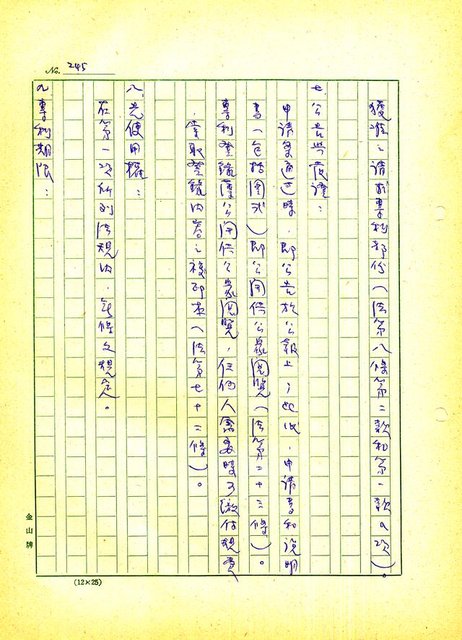 No. 245
獲准之請求專利部份(法第八條第二款和第一款a次)。
七、公告與閱讀：
申請案通過時，即公告於公報上；此後，申請書和說明
書(包括圖式)即公開供公眾閱覽(法第二十三條)。
專利登錄簿公開供公眾閱覽，任何人需要時可繳付規費
索取登錄內容之複印本(法第七十二條)。
八、先使用權：
在第一次所列法規內，無條文規定。
九、專利期限：
金山牌
(12×25)